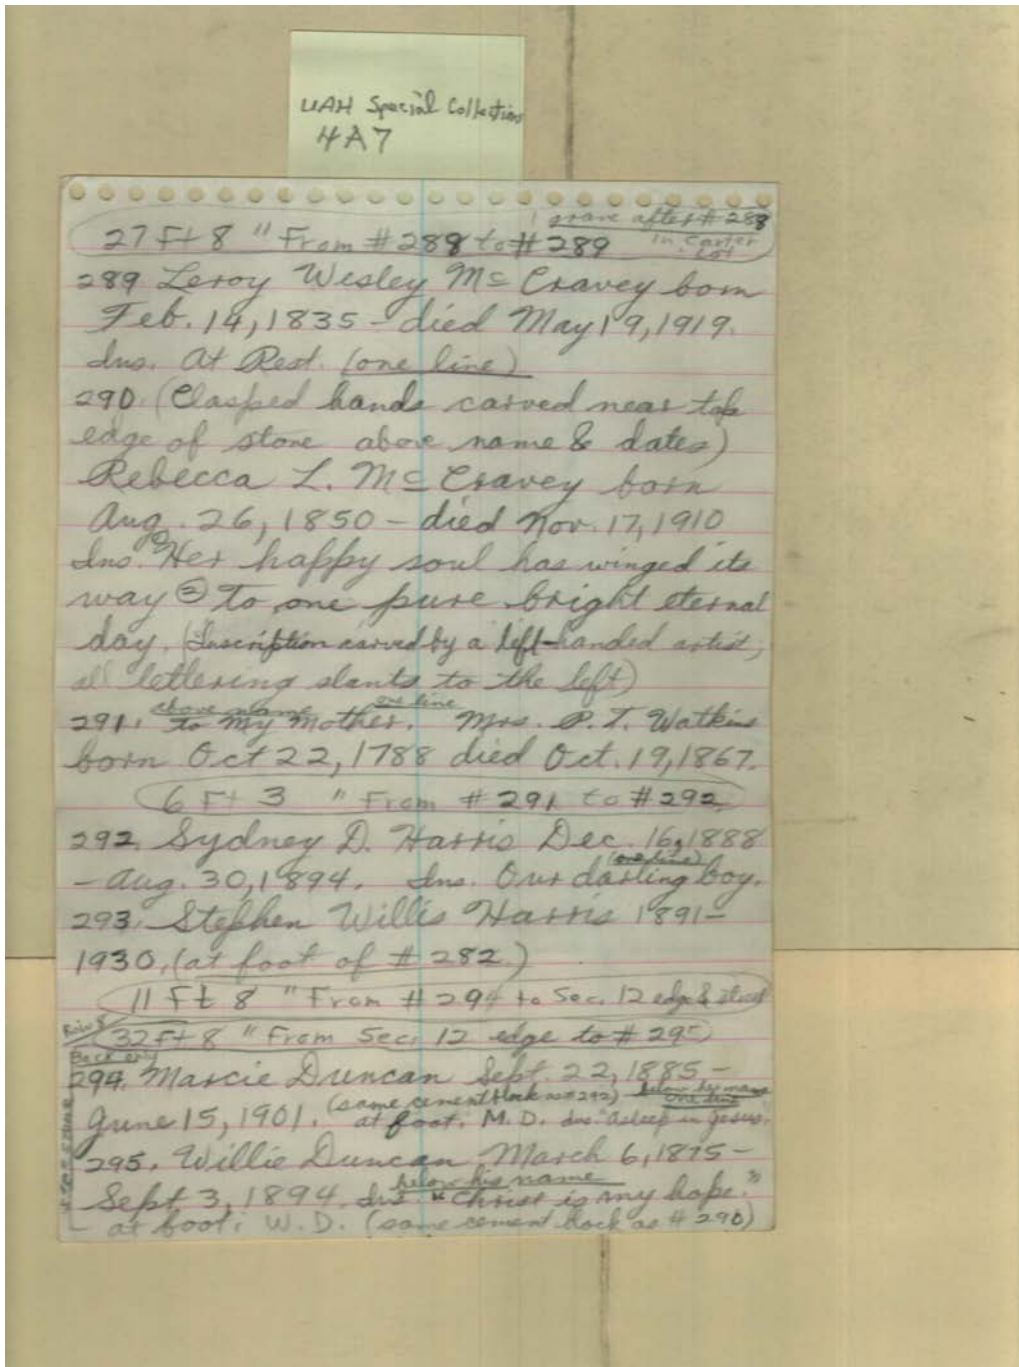 UAH Special Collections
4A7
1 grave after #288
27 Ft 8 " From #288 to #289 in Carter Lot
289 Leroy Wesley Mc Cravey born
Feb. 14, 1835 - died May 19, 1919.
Ins. At Rest. (one line)
290. (Clasped hands carved near top
edge of stone above name & dates)
Rebecca L. Mc Cravey born
Aug. 26, 1850 - died Nov. 17, 1910
Ins. ① Her happy soul has winged its
way ② To one pure bright eternal
day. (Inscription carved by a left-handed artist,
all lettering slants to the left)
above name one line
291. To My Mother. Mrs. P. T. Watkins
born Oct 22, 1788 died Oct. 19, 1867.
6 Ft 3 " From #291 to #292
292. Sydney D. Harris Dec. 16, 1888
(one line)
- Aug. 30, 1894. Ins. Our darling boy.
293. Stephen Willis Harris 1891-
1930. (at foot of #282.)
11 Ft 8 " From #294 to Sec. 12 edge & street
Row 8
32 Ft 8 " From Sec. 12 edge to #295
Back only
294. Marcie Duncan Sept. 22, 1885 -
(same cement block as #292) below her name one line
June 15, 1901. at foot. M. D. Ins. "Asleep in Jesus.
295. Willie Duncan March 6, 1875 -
below his name
Sept 3, 1894. Ins. "Christ is my hope."
at foot. W. D. (same cement block as #290)